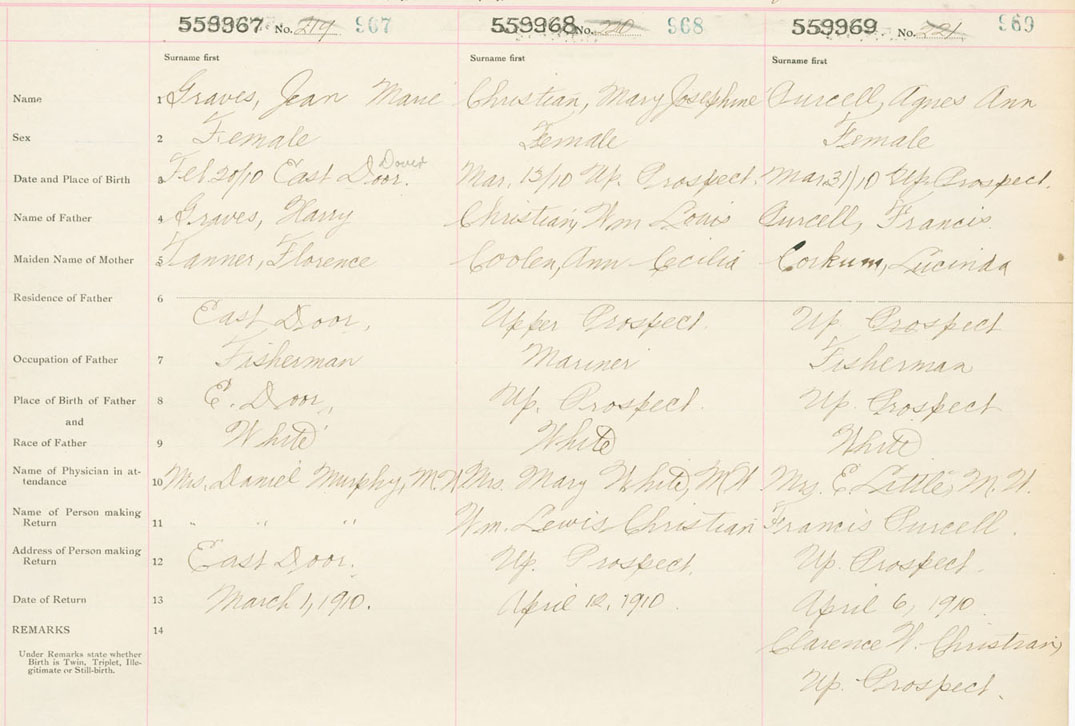 559967 No. 219 967 559968 No. 220 968 559969 No. 221 969
Surname first Surname first Surname first
Name 1 Graves, Jean Marie Christian, Mary Josephine Purcell, Agnes Ann
Sex 2 Female Female Female
Dover
Date and Place of Birth 3 Feb 20/10 East Door. Mar. 13/10 Up. Prospect. Mar 31/10 Up. Prospect.
Name of Father 4 Graves, Harry Christian, Wm Louis Purcell, Francis.
Maiden Name of Mother 5 Tanner, Florence Coolen, Ann Cecilia Corkum, Lucinda
Residence of Father 6
East Door, Upper Prospect. Up. Prospect
Occupation of Father 7 Fisherman Mariner Fisherman
Place of Birth of Father 8 E. Door, Up. Prospect. Up. Prospect
and
Race of Father 9 White White White
Name of Physician in at-
tendance 10 Mrs. Daniel Murphy, M.W Mrs. Mary White, M.W Mrs. E. Little, M.W.
Name of Person making
Return 11 " " " Wm. Lewis Christian Francis Purcell.
Address of Person making
Return 12 East Door. Up. Prospect. Up. Prospect.
Date of Return 13 March 1, 1910. April 12, 1910. April 6, 1910.
REMARKS 14
Clarence W. Christian,
Under Remarks state whether
Birth is Twin, Triplet, Ille-
gitimate or Still-birth.
Up. Prospect.